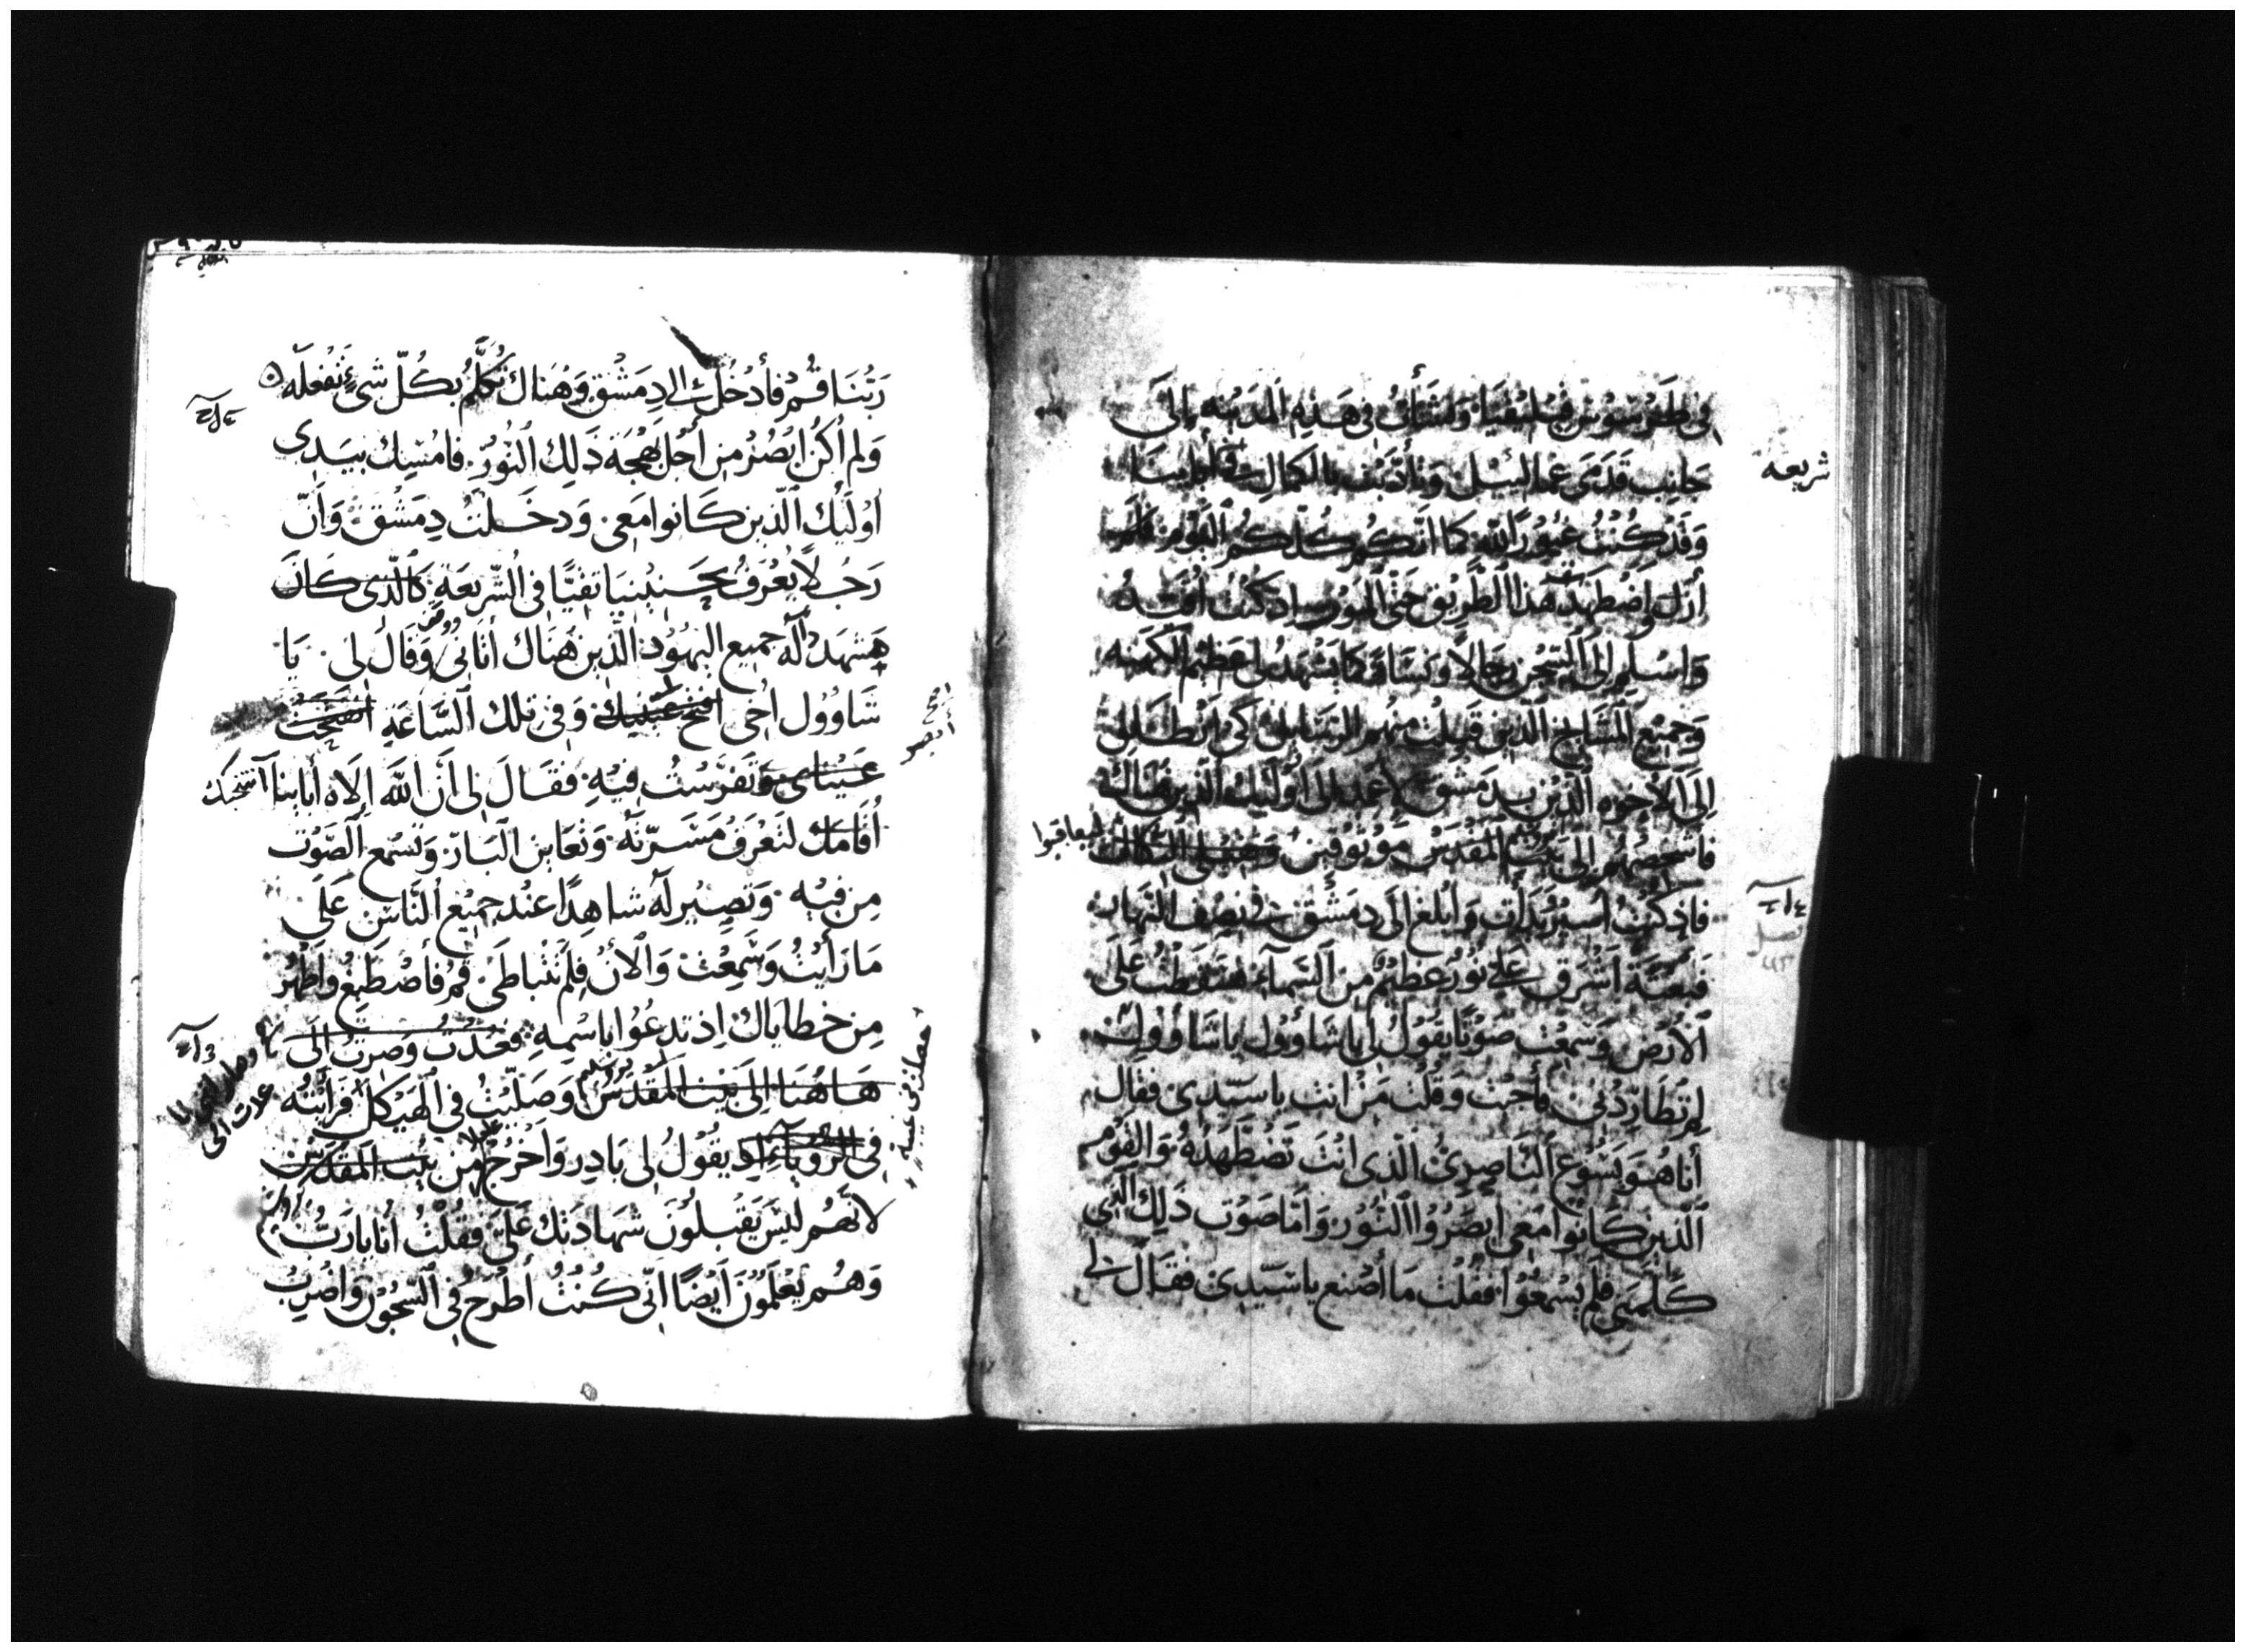 في طرسوس قيليقيا ونشأت في هذه المدينة إلى
شريعه
جانب قدمي غمالئيل وتأدبت بالكمال في
وقد كنت غيورًا لله كما انكم كلكم اليوم
أزل اضطهد هذا الطريق حتى الموت اذ كنت أقيد
واسلم إلى السجن رجالًا ونساءً كما يشهد لي عظيم الكهنه
وجميع المشايخ الذين قبلت منهم الرسايل كي انطلق
إلى الاخوه الذين بدمشق لأعمد إلى أوليك الذين هناك
فاشخصهم إلى بيت المقدس موثوقين
ليعاقبوا
فاذ كنت أسير بدأت وأبلغ إلى دمشق في نصف النهار
فبغتةً أشرق علي نور عظيم من السماء فسقطت على
الأرض وسمعت صوتًا يقول لي يا شاوول يا شاوول
لم تطاردني فأجبت وقلت من انت يا سيدي فقال
أنا هو يسوع الناصري الذي انت تضطهده والقوم
الذين كانوا معي ابصروا النور وأما صوت ذلك الذي
كلمني فلم يسمعوا فقلت ما أصنع يا سيدي فقال لي
ربنا قم فأدخل إلى دمشق وهناك تُكلَّم بكل شيء تفعله
ولم اكن ابصر من أجل بهجة ذلك النور فامسك بيدي
اوليك الذين كانوا معي ودخلت دمشق وان
رجلًا يعرف بحننيا تقيًّا في الشريعة كالذي كان
يشهد له جميع اليهود الذين هناك أتاني وقال لي يا
شاوول اخي افتح عينيك وفي تلك الساعة انفتحت
ابصر
عيناي وتفرست فيه فقال لي أن الله الاه أبابنا انتخبك
أقامك لتعرف مسرته وتعاين البار وتسمع الصوت
من فيه وتصير له شاهدًا عند جميع الناس على
ما رأيت وسمعت والان فلم تتباطى قم فأصطبغ واطهر
من خطاياك اذ تدعوا باسمه فعدت وصرت الى
هاهنا الى بيت المقدس وصليت في الهيكل فرأيته
في الرويا اذ يقول لي بادر واخرج من بيت المقدس
لانهم ليس يقبلون شهادتك علي فقلت أنا يا رب
وهم يعلمون أيضًا اني كنت أطرح في السجون واضرب